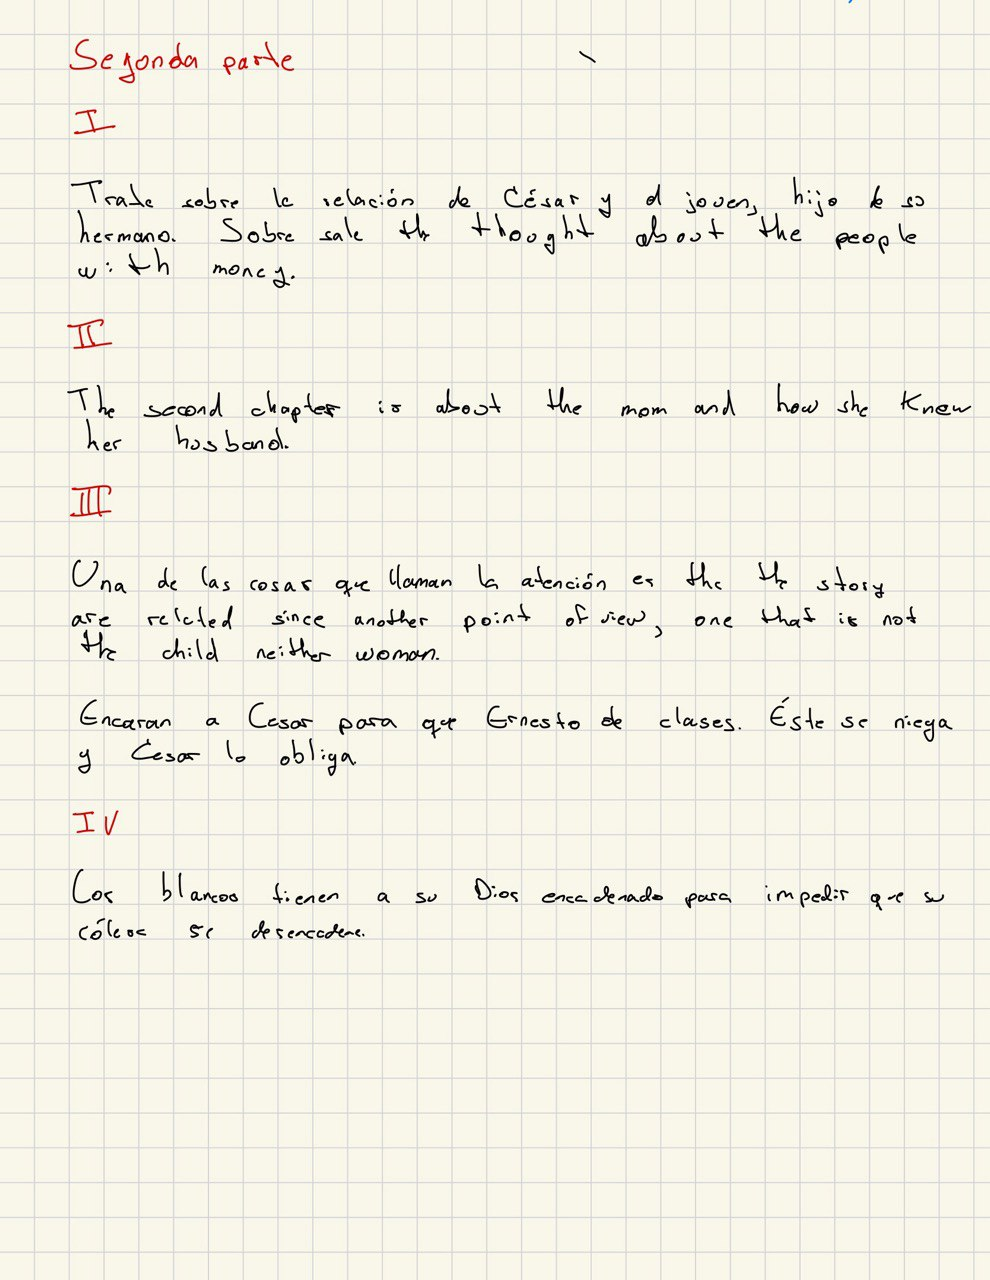 Segonda parte
I
Trata sobre la relación de César y el joven, hijo de su
hermano. Sobre sale the thought about the people
with money.
II
The second chapter is about the mom and how she Know
her husband.
III
Una de las cosas que llaman la atención es the the story
are related since another point of view, one that is not
the child neither woman.
Encaran a Cesar para que Ernesto de clases. Éste se niega
y Cesar lo obliga
IV
Los blancos tienen a su Dios encadenado para impedir que su
cólera se desencadene.